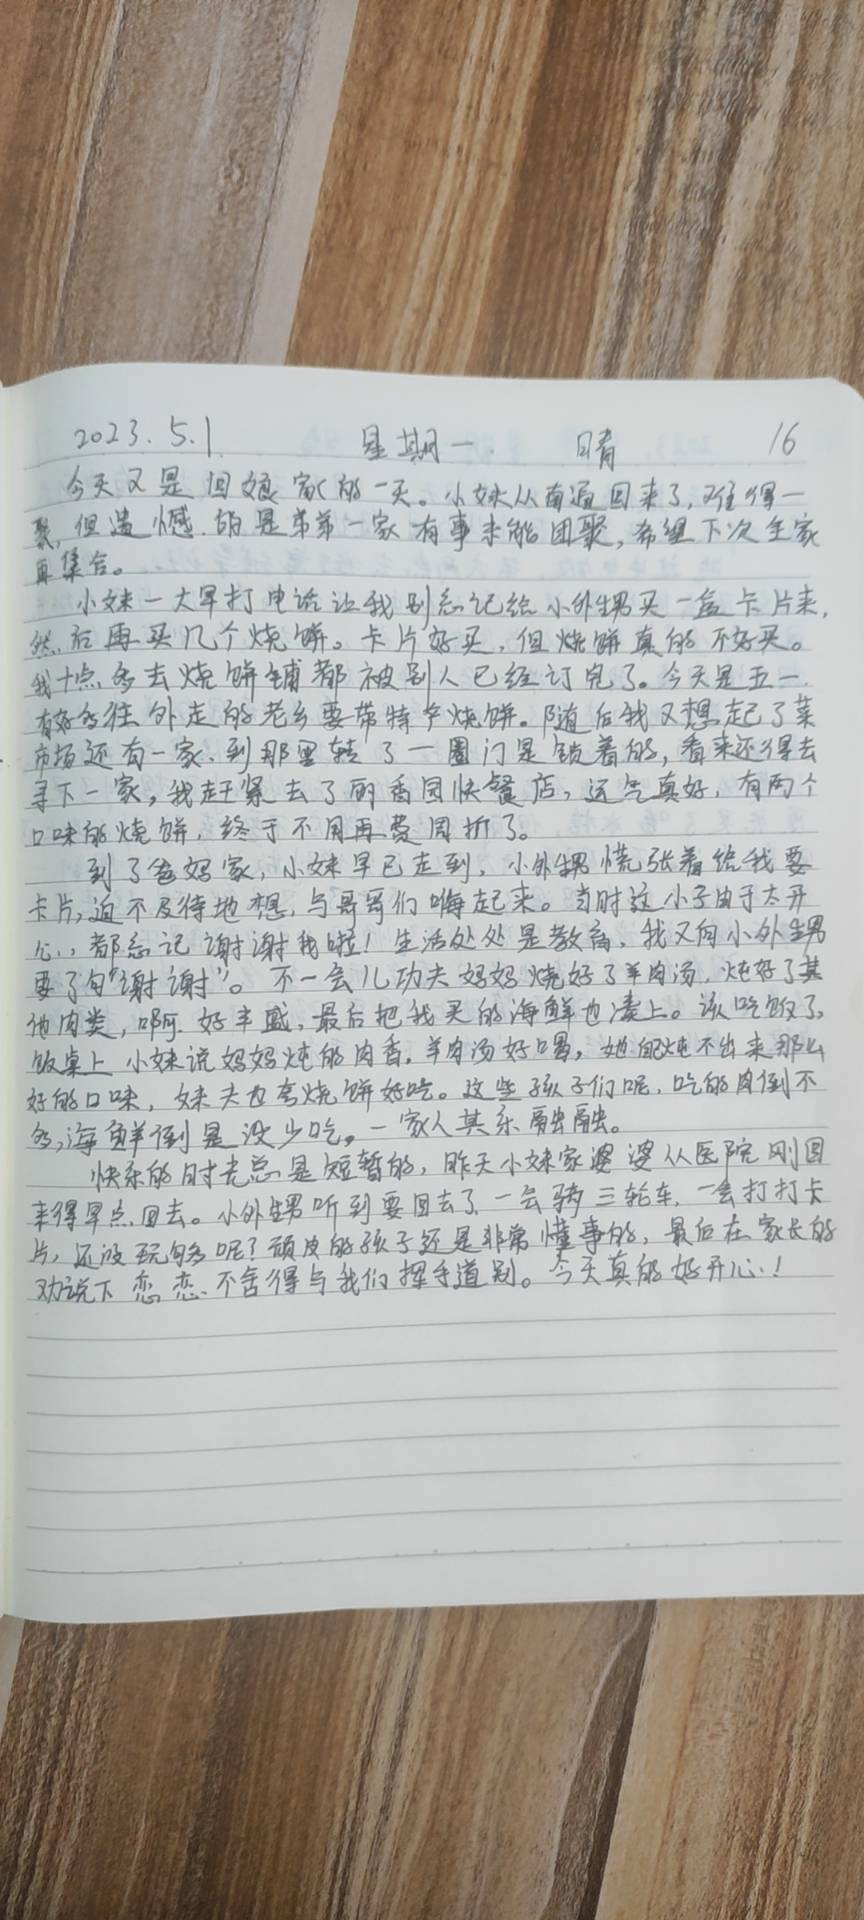 2023.5.1. 星期一. 晴 16
今天又是回娘家的一天。小妹从南通回来了,难得一
聚,但遗憾的是弟弟一家有事未能团聚,希望下次全家
再集合。
小妹一大早打电话让我别忘记给小外甥买一盒卡片来,
然后再买几个烧饼。卡片好买,但烧饼真的不好买。
我十点多去烧饼铺都被别人已经订完了。今天是五一.
有好多往外走的老乡要带特产烧饼。随后我又想起了菜
市场还有一家、到那里转了一圈门是锁着的,看来还得去
寻下一家,我赶紧去了丽香园快餐店,运气真好,有两个
口味的烧饼,终于不用再费周折了。
到了爸妈家,小妹早已走到,小外甥慌张着给我要
卡片,迫不及待地想与哥哥们嗨起来。当时这小子由于太开
心,都忘记谢谢我啦!生活处处是教育,我又向小外甥
要了句“谢谢”。不一会儿功夫妈妈烧好了羊肉汤,炖好了其
他肉类,啊.好丰盛,最后把我买的海鲜也凑上。该吃饭了,
饭桌上小妹说妈妈炖的肉香,羊肉汤好喝,她都炖不出来那么
好的口味,妹夫也夸烧饼好吃。这些孩子们呢,吃的肉倒不
多,海鲜倒是没少吃。一家人其乐融融。
快乐的时光总是短暂的,昨天小妹家婆婆从医院刚回
来得早点回去。小外甥听到要回去了一会骑三轮车,一会打打卡
片,还没玩够呢?顽皮的孩子还是非常懂事的,最后在家长的
劝说下恋恋不舍得与我们挥手道别。今天真的好开心!